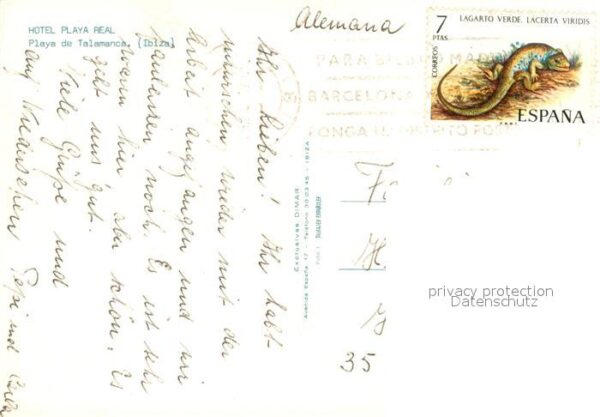 HOTEL PLAYA REAL
Playa de Talamanca. (Ibiza)
Ihr Lieben! Ihr habt
inzwischen wieder mit der
Arbeit angefangen und wir
faulenzen noch. Es ist sehr
warm hier aber schön. Es
geht uns gut.
Viele Grüße und
auf Wiedersehen
Exclusivas DIMAR
Avenida España, 17 - Teléfono 30.03.45 - IBIZA
Alemana
7 PTAS
LAGARTO VERDE. LACERTA VIRIDIS
CORREOS
ESPAÑA
PARA
BARCELONA
PONGA EL DISTRITO POSTAL
F
H
35
privacy protection
Datenschutz